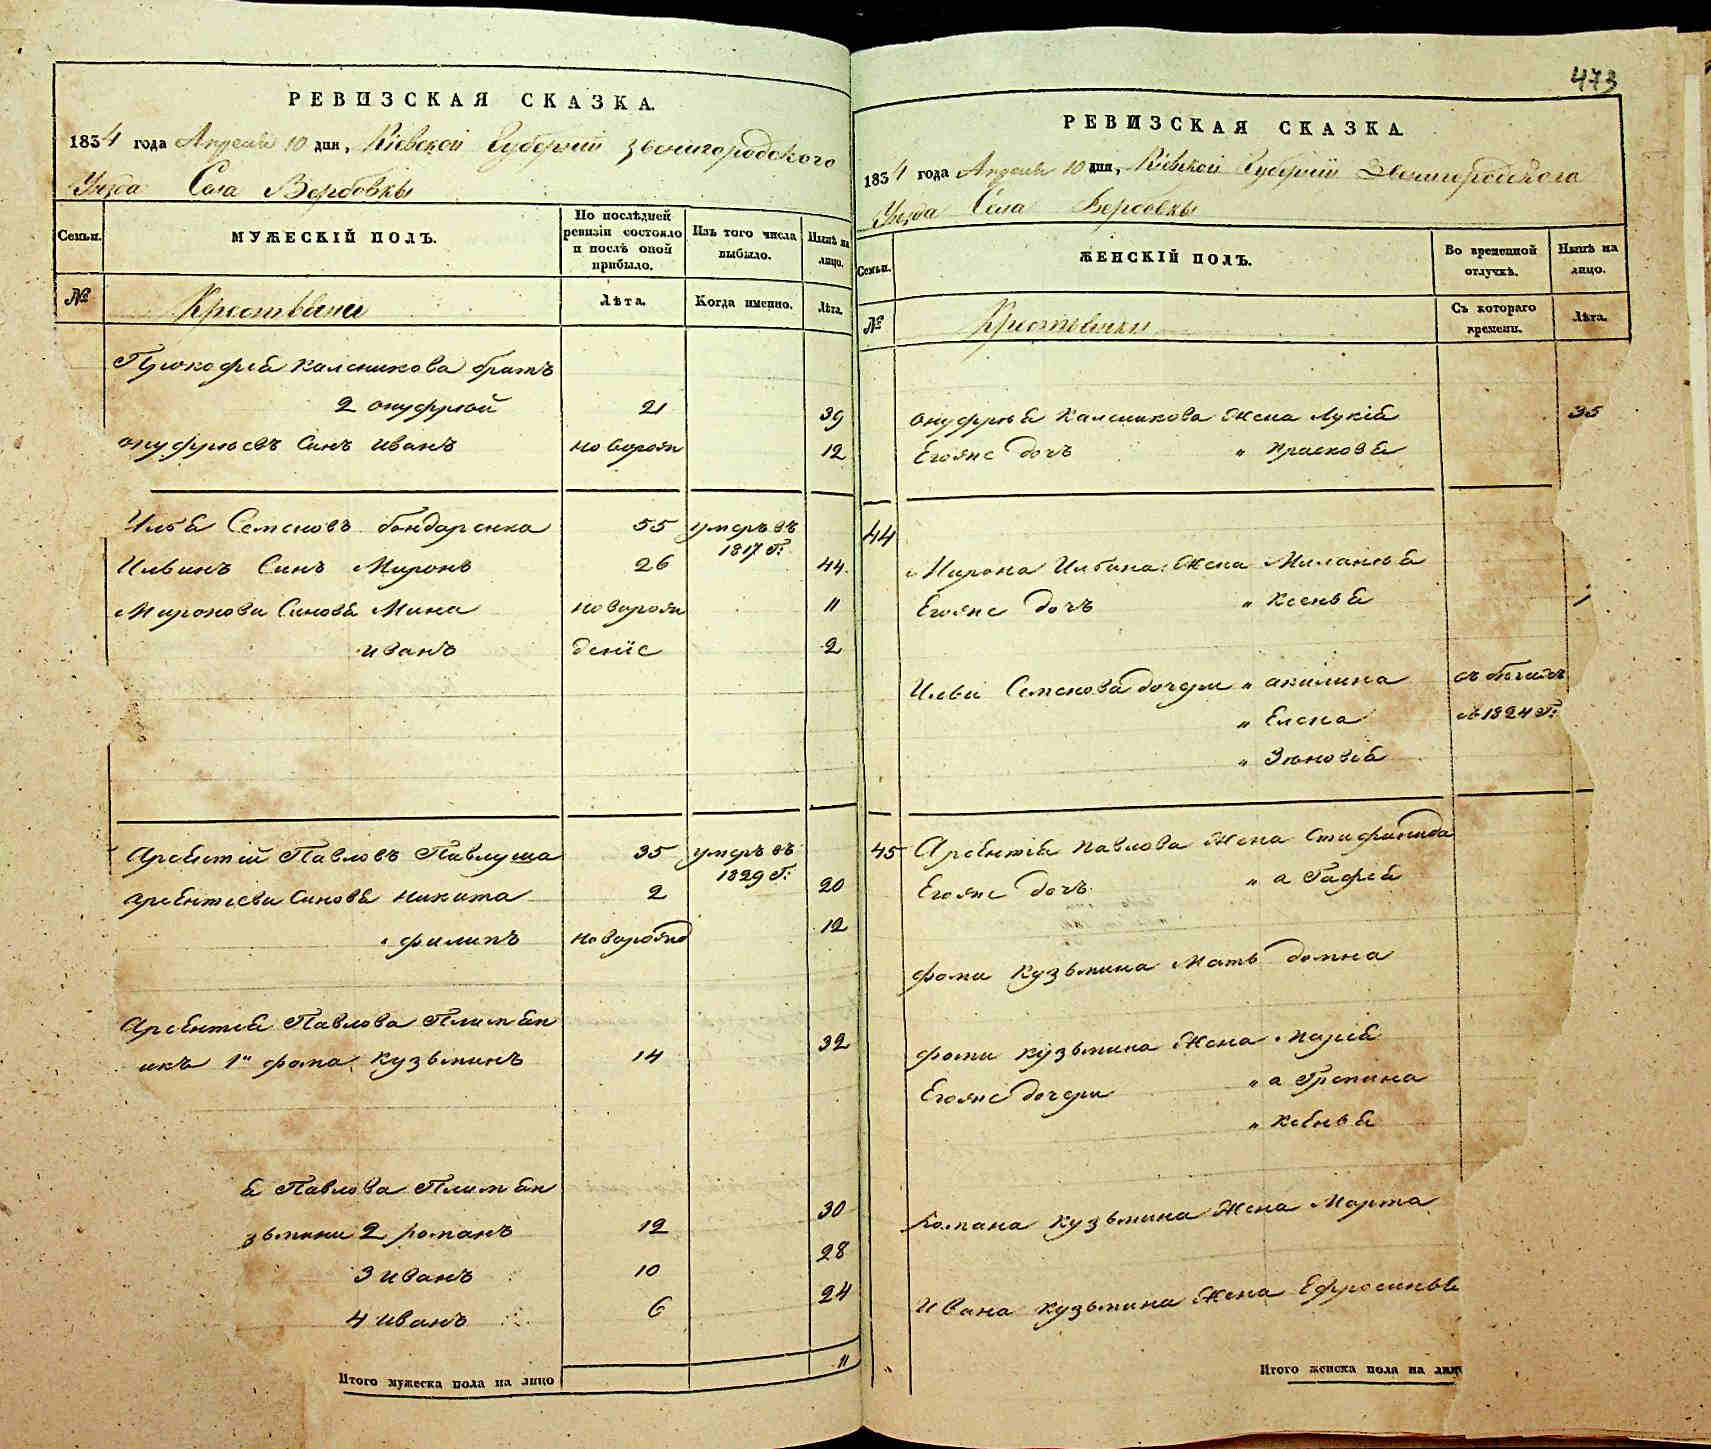 РЕВИЗСКАЯ СКАЗКА.
1834 года Апреля 10 дня, Кіевской Губерніи Звенигородского
Уезда Села Вербовки
Семьи.
МУЖЕСКІЙ ПОЛЪ.
По послѣдней ревизіи состояло и послѣ оной прибыло.
Изъ того числа выбыло.
Нынѣ на лицо.
№
Крестьяне
Лѣта.
Когда именно.
Лѣта.
Прокофея Каленикова братъ
2 онуфрей 21 39
онуфреевъ Синъ иванъ новорож 12
Илья Семеновъ бондаренка 55 умеръ въ 1817 Г:
Ильинъ Синъ Миронъ 26 44
Миронови Синовя Мина новорож 11
иванъ деніе 2
Арсентій Павловъ Павлуша 35 умеръ въ 1829 Г:
арсентіеви Синовя никита 2 20
филипъ новорожд 12
Арсентія Павлова Плимян
икъ 1й фома Кузьминъ 14 32
я Павлова Плимян
зьмини 2 романъ 12 30
3 иванъ 10 28
4 иванъ 6 24
Итого мужеска пола на лицо 11
473
РЕВИЗСКАЯ СКАЗКА.
1834 года Апреля 10 дня, Кіевской Губерніи Звенигородского
Уезда Села Вербовки
Семьи.
ЖЕНСКІЙ ПОЛЪ.
Во временной отлучкѣ.
Нынѣ на лицо.
№
Крестьянки
Съ котораго времени.
Лѣта.
онуфрѣя Каленикова Жена Лукія 35
Егояже дочъ " Прасковя
44
Мирона Ильина Жена Миланья
Егояже дочъ " Ксенья
Ильи Семенова дочери " акилина
" Елена 1824 Г:
" Зѣновія
45 Арсентія Павлова Жена Стифанида
Егояже дочъ " а Гафія
фоми Кузьмина Мать домна
фоми Кузьмина Жена Марія
Егояже дочери " а Грепина
" Ксенья
Романа Кузьмина Жена Марта
Ивана Кузьмина Жена Ефросинья
Итого женска пола на лиц